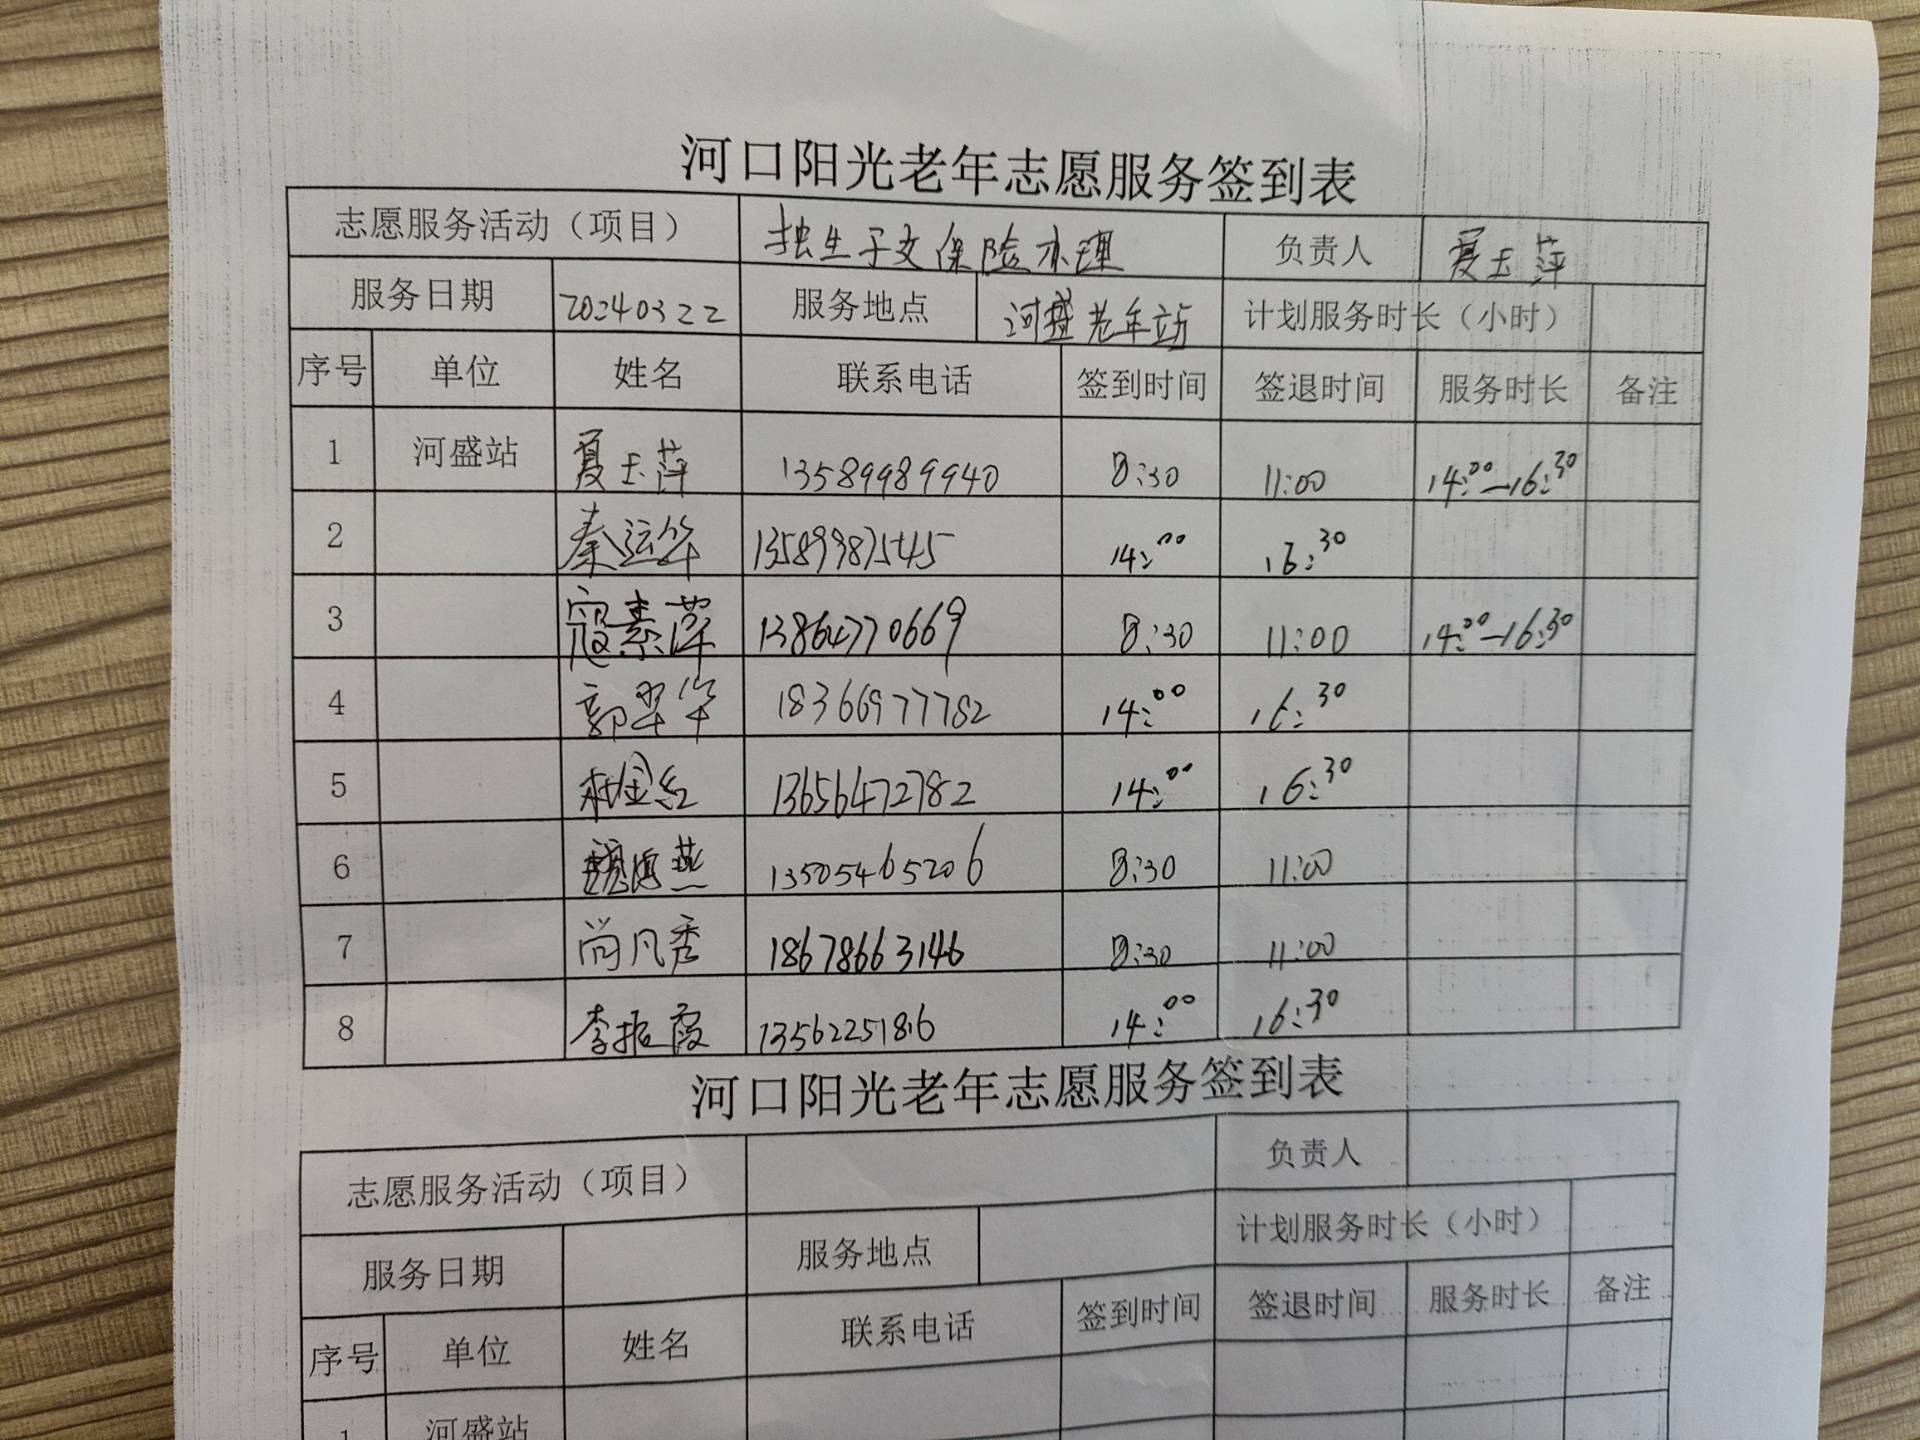 河口阳光老年志愿服务签到表
志愿服务活动（项目） 独生子女保险办理 负责人 夏玉萍
服务日期 20240322 服务地点 河盛老年站 计划服务时长（小时）
序号 单位 姓名 联系电话 签到时间 签退时间 服务时长 备注
1 河盛站 夏玉萍 13589989940 8:30 11:00 14:00—16:30
2 秦运华 13589987545 14:00 16:30
3 寇素萍 13864770669 8:30 11:00 14:00—16:30
4 郭翠华 18366977782 14:00 16:30
5 杜金红 13656472782 14:00 16:30
6 燕 13505465206 8:30 11:00
7 尚凡秀 18678663146 8:30 11:00
8 李振霞 13562251816 14:00 16:30
河口阳光老年志愿服务签到表
志愿服务活动（项目） 负责人
服务日期 服务地点 计划服务时长（小时）
序号 单位 姓名 联系电话 签到时间 签退时间 服务时长 备注
1 河盛站